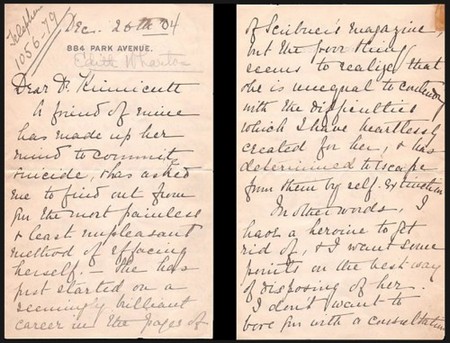 Telephone
1056-79
Dec. 26th 04
884 PARK AVENUE.
Edith Wharton
Dear Dr. Kinnicutt
A friend of mine
has made up her
mind to commit
suicide, & has asked
me to find out from
you the most painless
& least unpleasant
method of effacing
herself. — She has
just started on a
seemingly brilliant
career in the pages of
of Scribner's Magazine,
but the poor thing
seems to realize that
she is unequal to contend
with the difficulties
which I have heartlessly
created for her, & has
determined to escape
from them by self-extinction
In other words, I
have a heroine to get
rid of, & I want some
points on the best way
of disposing of her.
I don't want to
bore you with a consultation